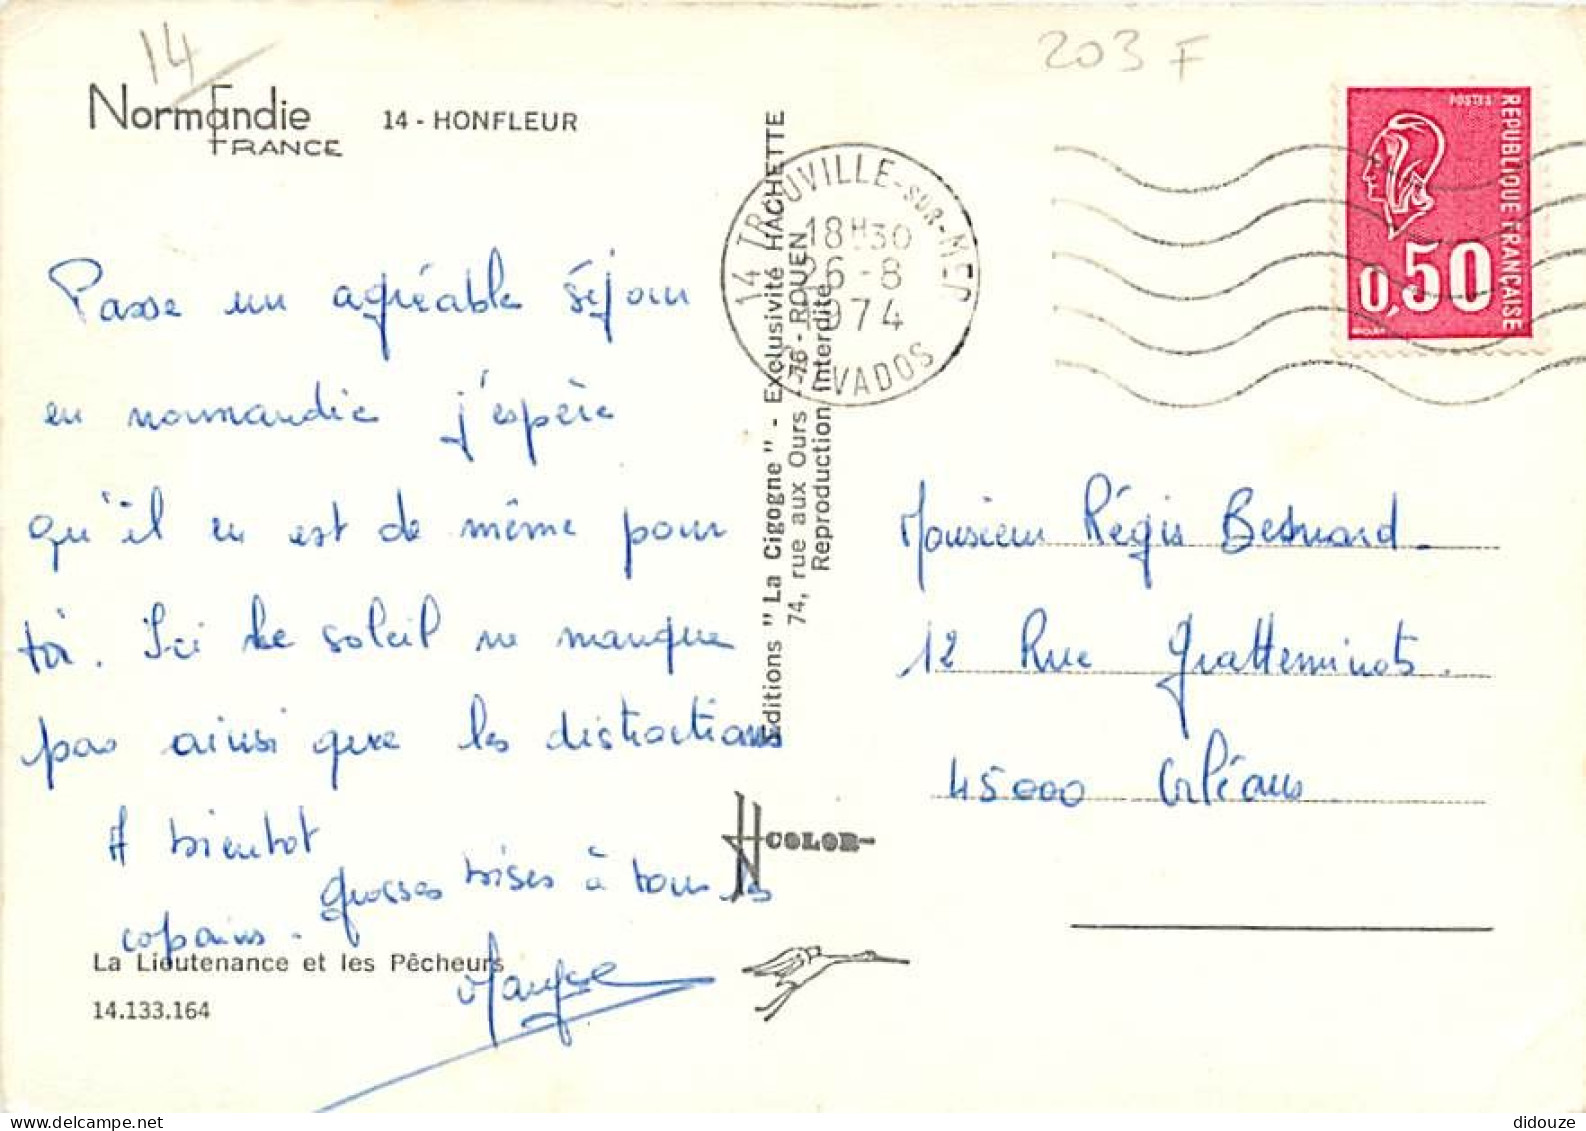 14
203 F
Normandie
FRANCE
14 - HONFLEUR
POSTES
REPUBLIQUE FRANÇAISE
0,50
14 TROUVILLE-SUR-MER
18H30
26-8
1974
CALVADOS
Passe un agréable séjour
en normandie j'espère
qu'il en est de même pour
toi. Ici le soleil ne manque
pas ainsi que les distractions
A bientot
grosses bises à tous les
copains.
La Lieutenance et les Pêcheurs
14.133.164
Editions "La Cigogne" - Exclusivité HACHETTE
74, rue aux Ours - 76 - ROUEN
Reproduction interdite
COLOR
Monsieur Régis Besnard.
12 Rue Gratteminots.
45000 Orléans
didouze